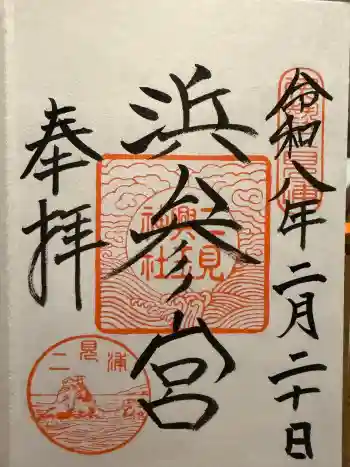 令和八年二月二十日
浜参宮
奉拝
二見興玉神社
二見浦